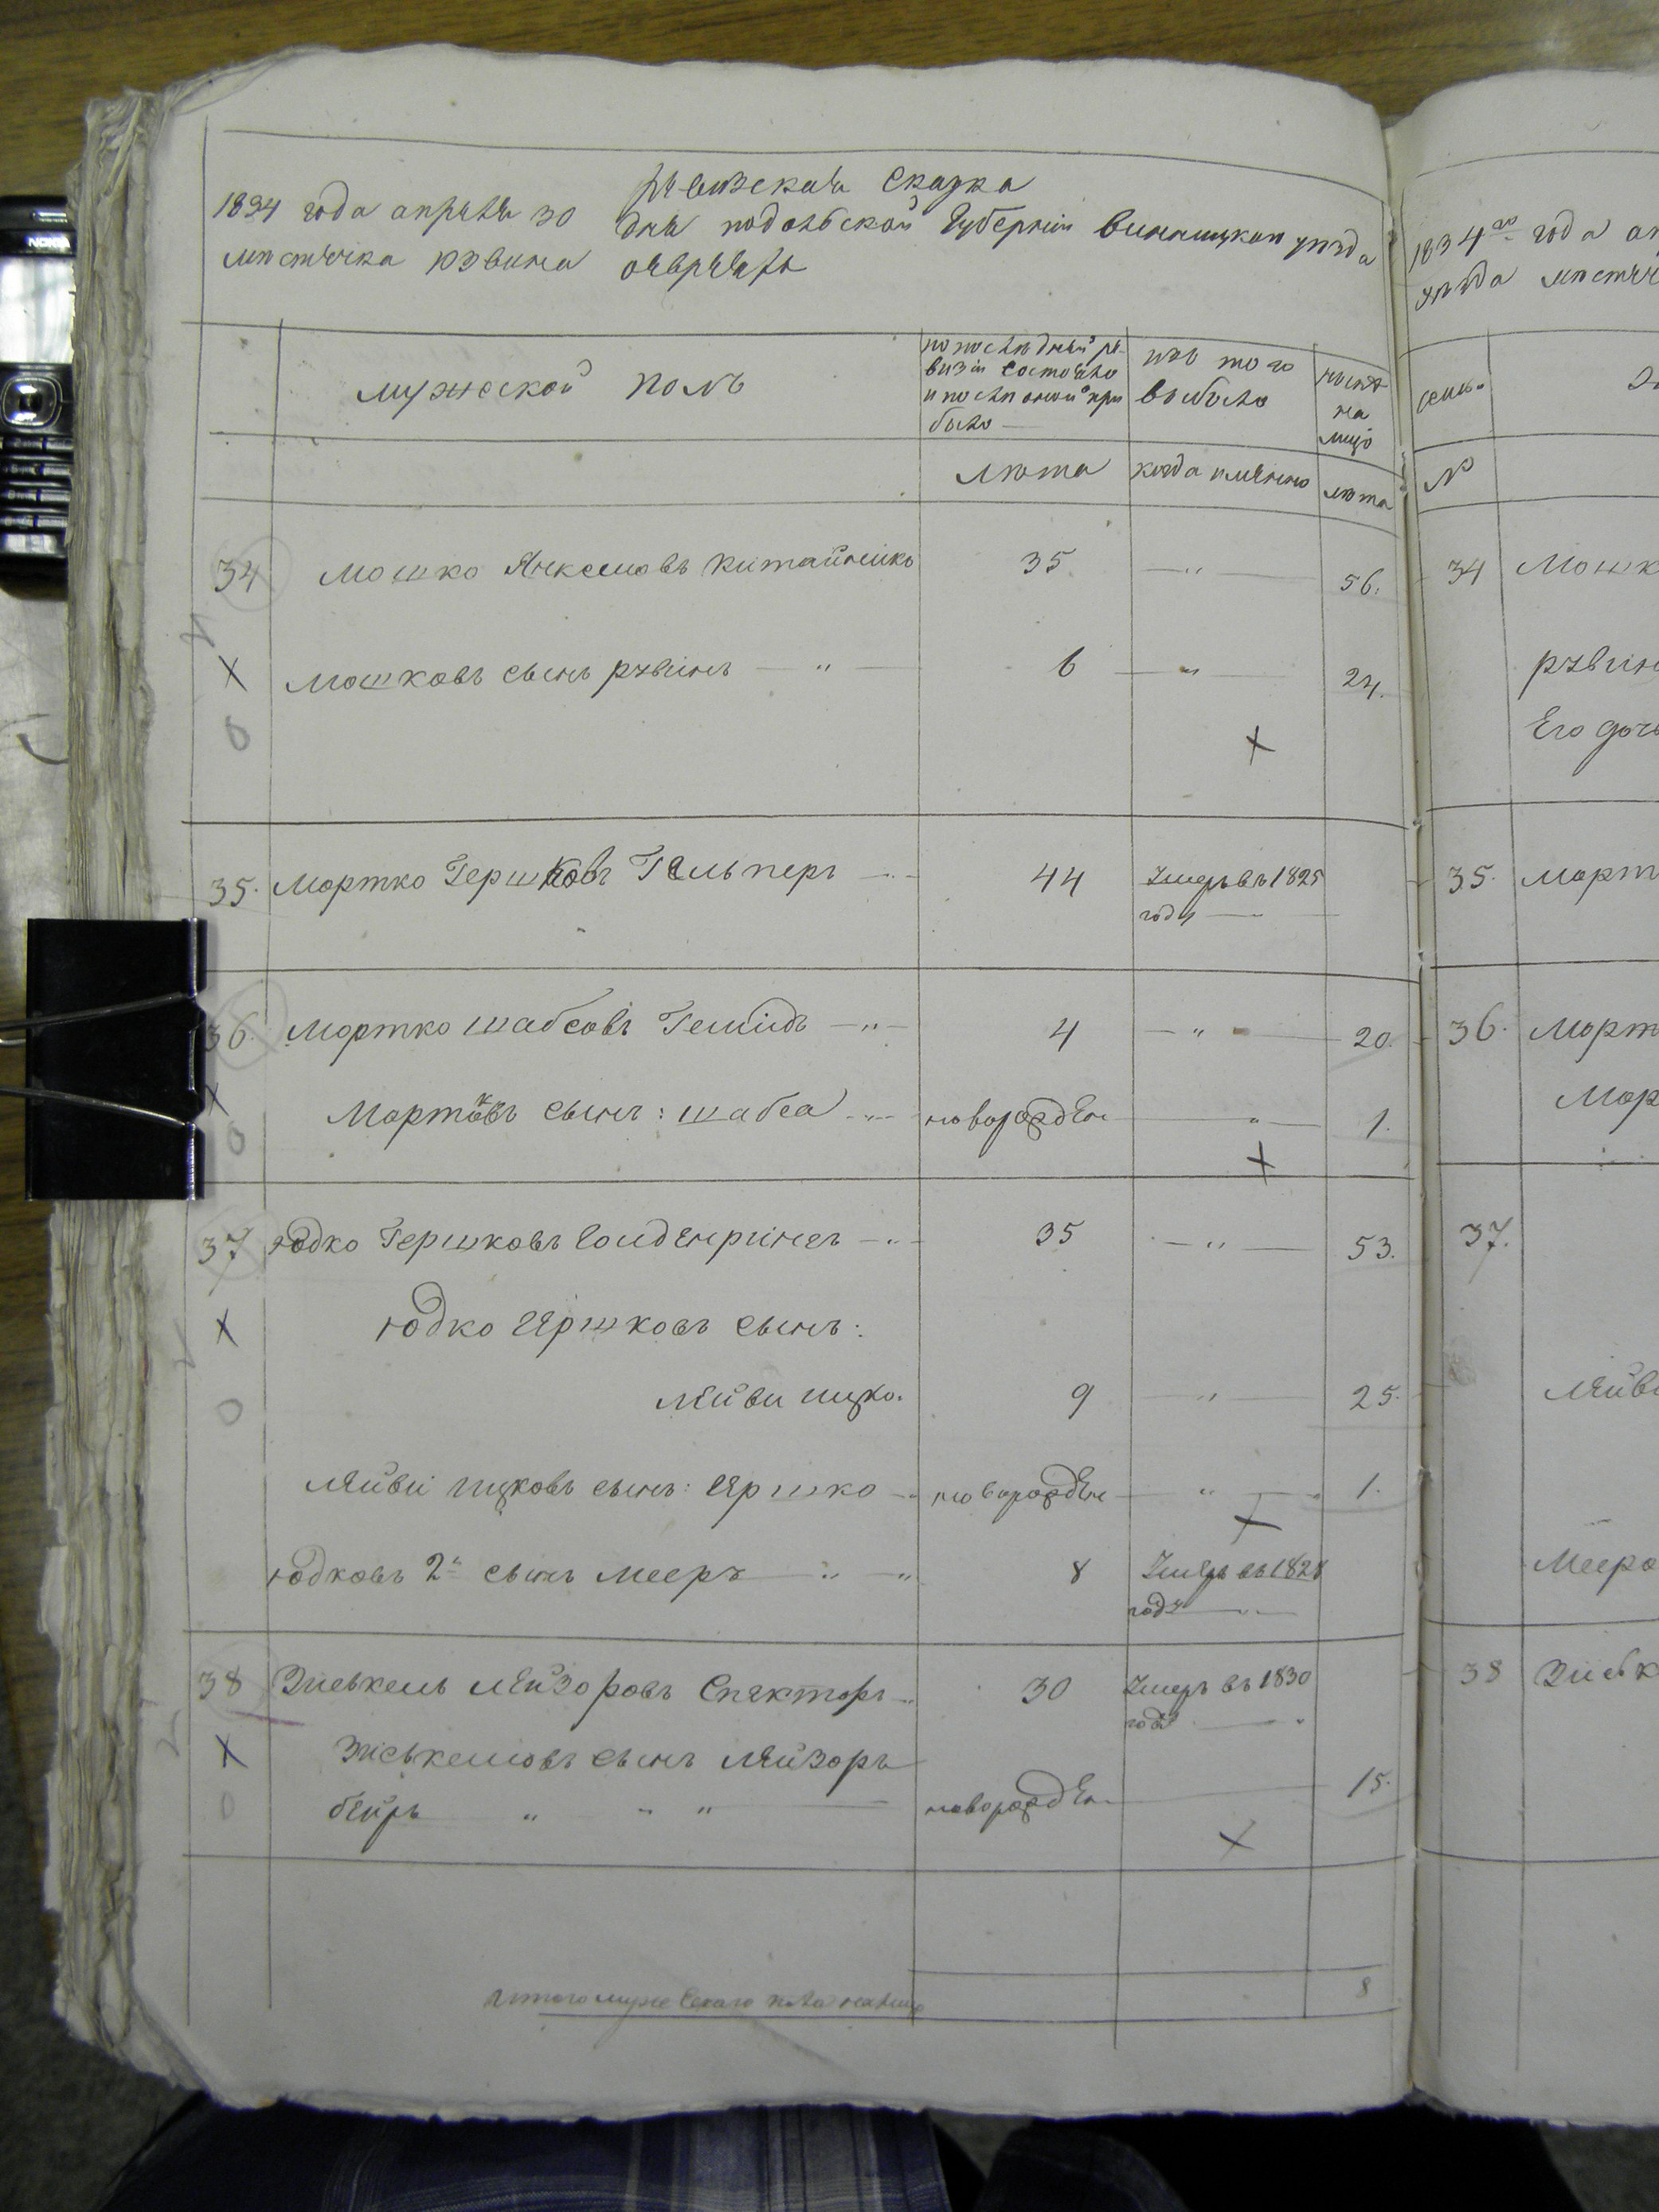 NOKIA
ревизская Сказка
1834 года апреля 30 дня подольской Губернии винницкаго уезда
местечка юзвина евреяхъ
мужеской полъ
по последней ре-
визіи состояло
и после оной при
было
изъ того
выбыло
ныне
на
лицо
лета
когда имянно
лета
34 Мошко Янкелювъ Китайникъ 35 — " — 56.
Мошковъ сынъ рувинъ — " — 6 — " — 24.
35. Мортко Гершковъ Гельперъ 44 Умеръ въ 1825
году
36. Мортко шабсовъ 4 — " — 20.
Мортковъ сынъ: шабса новорожден — " — 1.
37 юдко Гершковъ Голденрингъ 35 — " — 53.
юдко Гершковъ сынъ:
Лейви ицко. 9 — " — 25.
Лейви ицковъ сынъ: Гершко новорожден — " — 1.
юдковъ 2й сынъ Мееръ 8 Умеръ въ 1828
году
38 Зиськель Лейзоровъ Спекторъ 30 Умеръ въ 1830
году
Зиськелювъ сынъ Лейзоръ
беръ " " " новорожден 15.
итого мужескаго пола налицо 8
1834го года ап
уезда местеч
семьи
№
34 Мошк
рувин
Его дочь
35. Морт
36. Морт
Мор
37.
Лейви
Меера
38 Зиськ